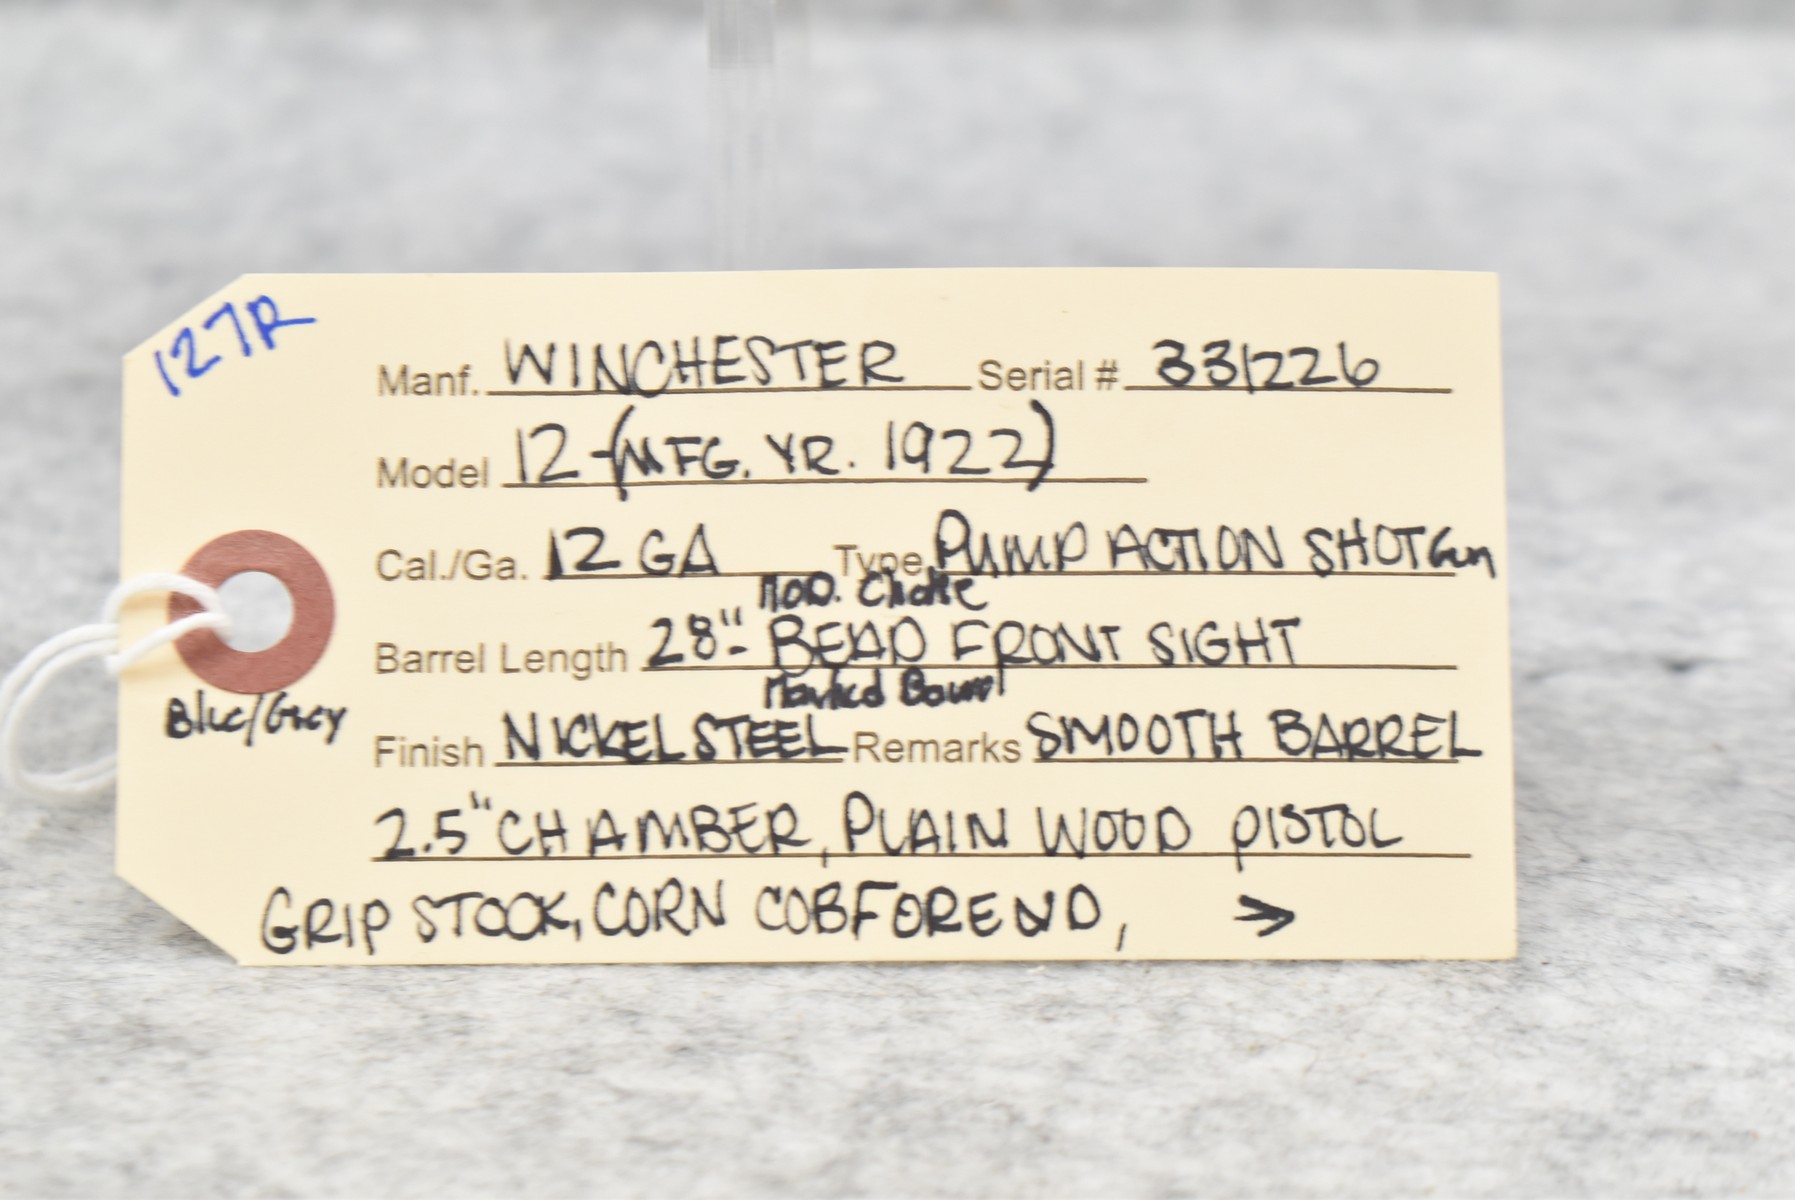 127R
Manf. WINCHESTER Serial # 331226
Model 12-(MFG. YR. 1922)
Cal./Ga. 12 GA Type PUMP ACTION SHOTGun
MOD. Choke
Barrel Length 28"- BEAD FRONT SIGHT
Marked Barrel
Blue/Grey
Finish NICKEL STEEL Remarks SMOOTH BARREL
2.5" CHAMBER, PLAIN WOOD PISTOL
GRIP STOCK, CORN COB FOREND, →